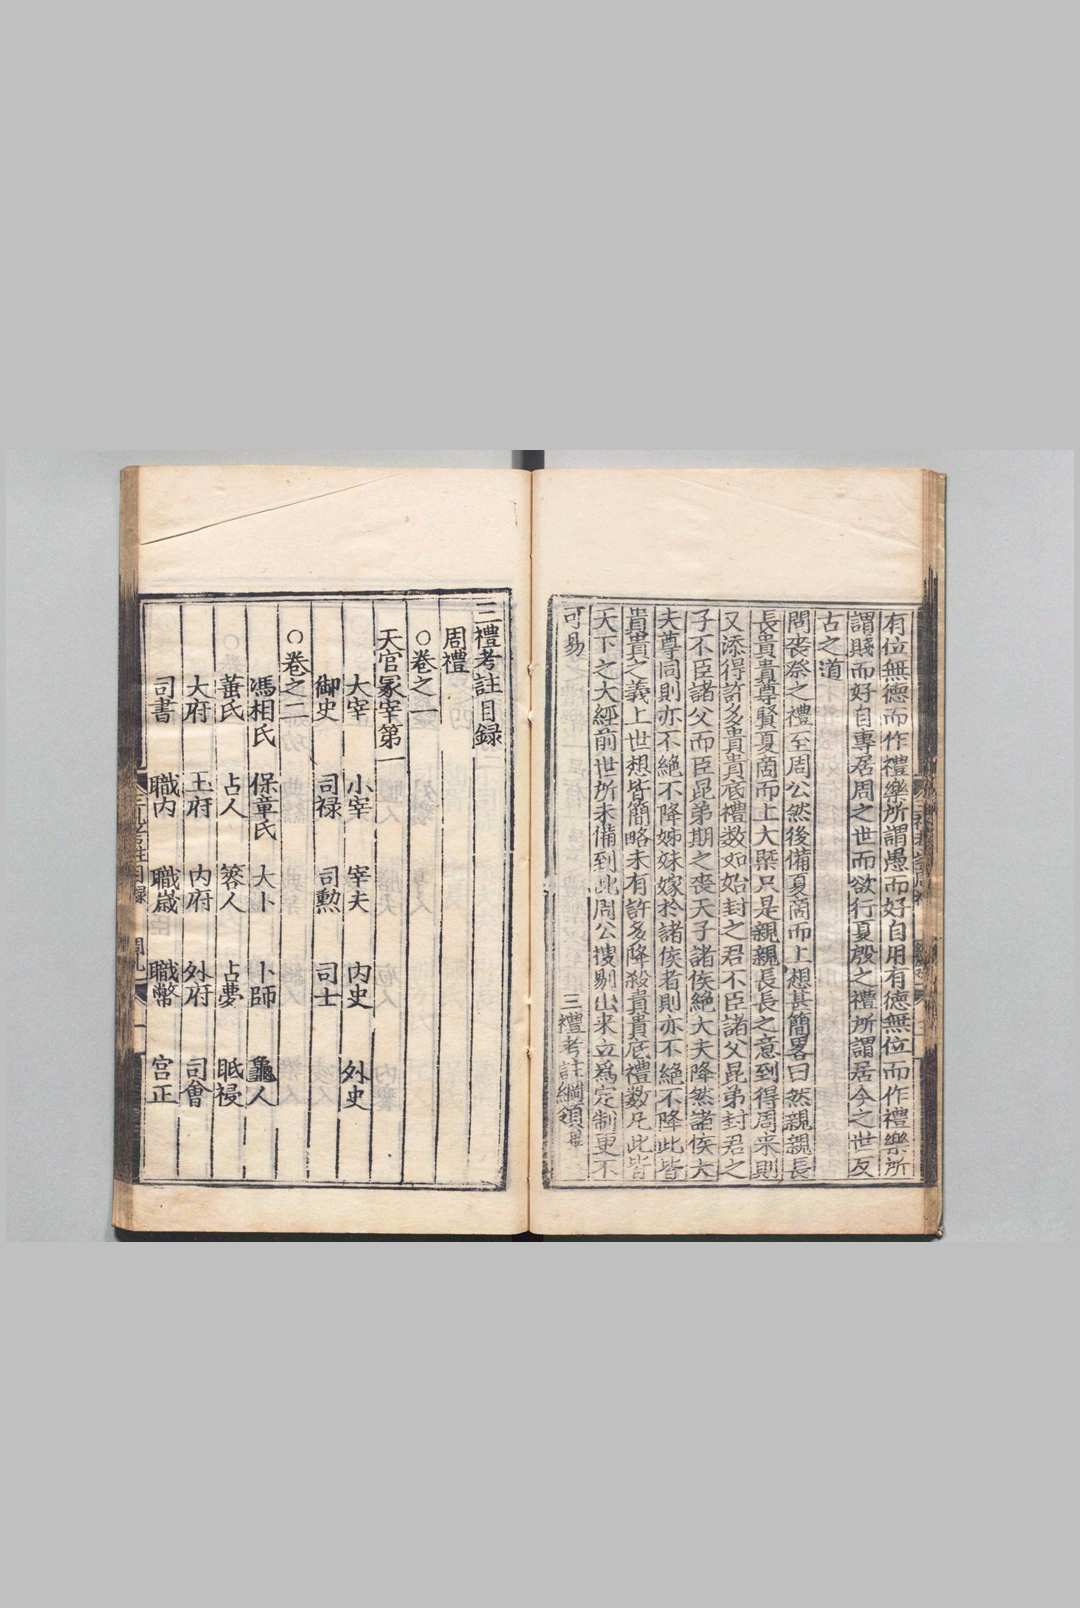 有位無德而作禮樂所謂愚而好自用有德無位而作禮樂所
謂賤而好自專居周之世而欲行夏殷之禮所謂居今之世反
古之道
問喪祭之禮至周公然後備夏商而上想甚簡畧曰然親親長
長貴貴尊賢夏商而上大槩只是親親長長之意到得周来則
又添得許多貴貴底禮数如始封之君不臣諸父昆弟封君之
子不臣諸父而臣昆弟期之喪天子諸侯絶大夫降然諸侯大
夫尊同則亦不絶不降姊妹嫁於諸侯者則亦不絶不降此皆
貴貴之義上世想皆簡略未有許多降殺貴貴底禮数凡此皆
天下之大經前世所未備到此周公搜剔出来立爲定制更不
可易
三禮考註綱領
三禮考註目録
周禮
○卷之一
天官冢宰第一
大宰 小宰 宰夫 内史 外史
御史 司禄 司勲 司士
○卷之二
馮相氏 保章氏 大卜 卜師 龜人
菙氏 占人 簭人 占夢 眡祲
大府 王府 内府 外府 司會
司書 職内 職歲 職幣 宫正